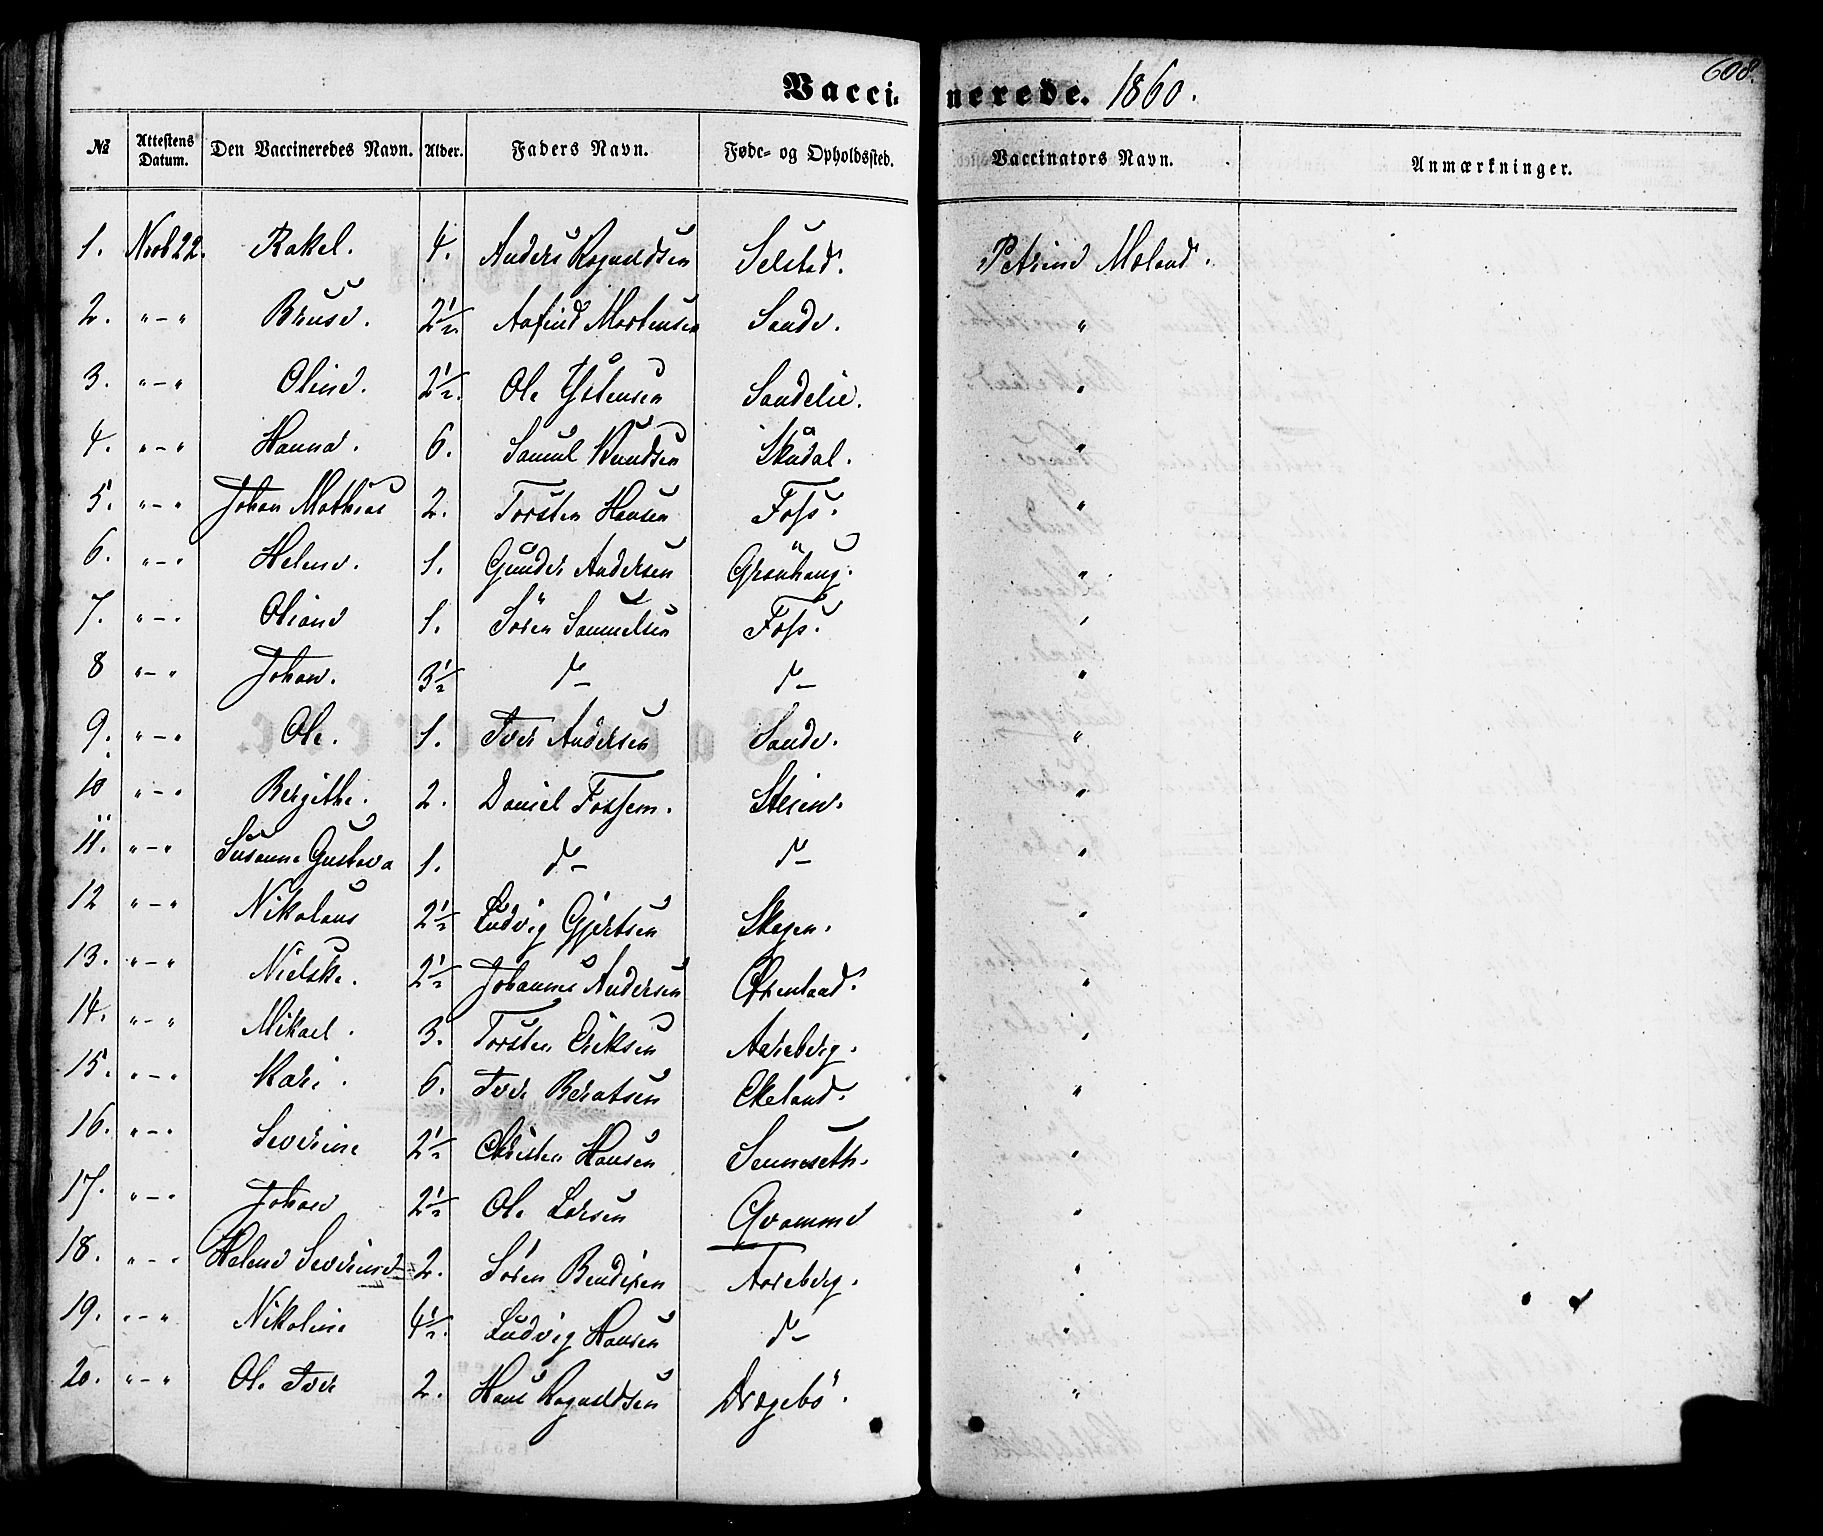 608.
Vaccinerede. 1860.
№ | Attestens Datum. | Den Vaccineredes Navn. | Alder. | Faders Navn. | Føde- og Opholdssted. | Vaccinators Navn. | Anmærkninger.
1. Novb 22. Rakel. 4. Anders Ragnvldsen Selstad. Petrine Moland.
2. " - " 2½ Mortensen Sande. "
3. " - " Oline. 2½. Ole Ystensen Sandelie. "
4. " - " Hanna. 6. Samuel Knudsen Skådal. "
5. " - " Johan Mathias 2. Torsten Hansen Foss. "
6. " - " Helene. 1. Gunder Andersen Grönhaug. "
7. " - " Oliane 1. Sören Samuelsen Foss. "
8 " - " Johan. 3½ d- d- "
9. " - " Ole. 1. Iver Andersen Sande. "
10 " - " Bergithe. 2. Daniel "
11. " - " Susanne Gustava 1. d- d- "
12 " - " Nikolaus 2½ Ludvig Gjertsen Skagen. "
13. " - " Nielske. 2½ Johannes Andersen "
14. " - " Mikael. 3. Torsten Eriksen Aareberg. "
15. " - " Kari. 6. Iver Berntsen Ekeland. "
16. " - " Severine 2½ Christen Hansen Senneseth. "
17. " - " Johan 2½ Ole Larsen Qvamme "
18. " - " Helene Severine 2. Sören Bendixen Aareberg. "
19. " - " Nikoline 4½. Ludvig Hansen d- "
20. " - " Ole Iver 2. Hans Ragnvldsen Dragebö. "